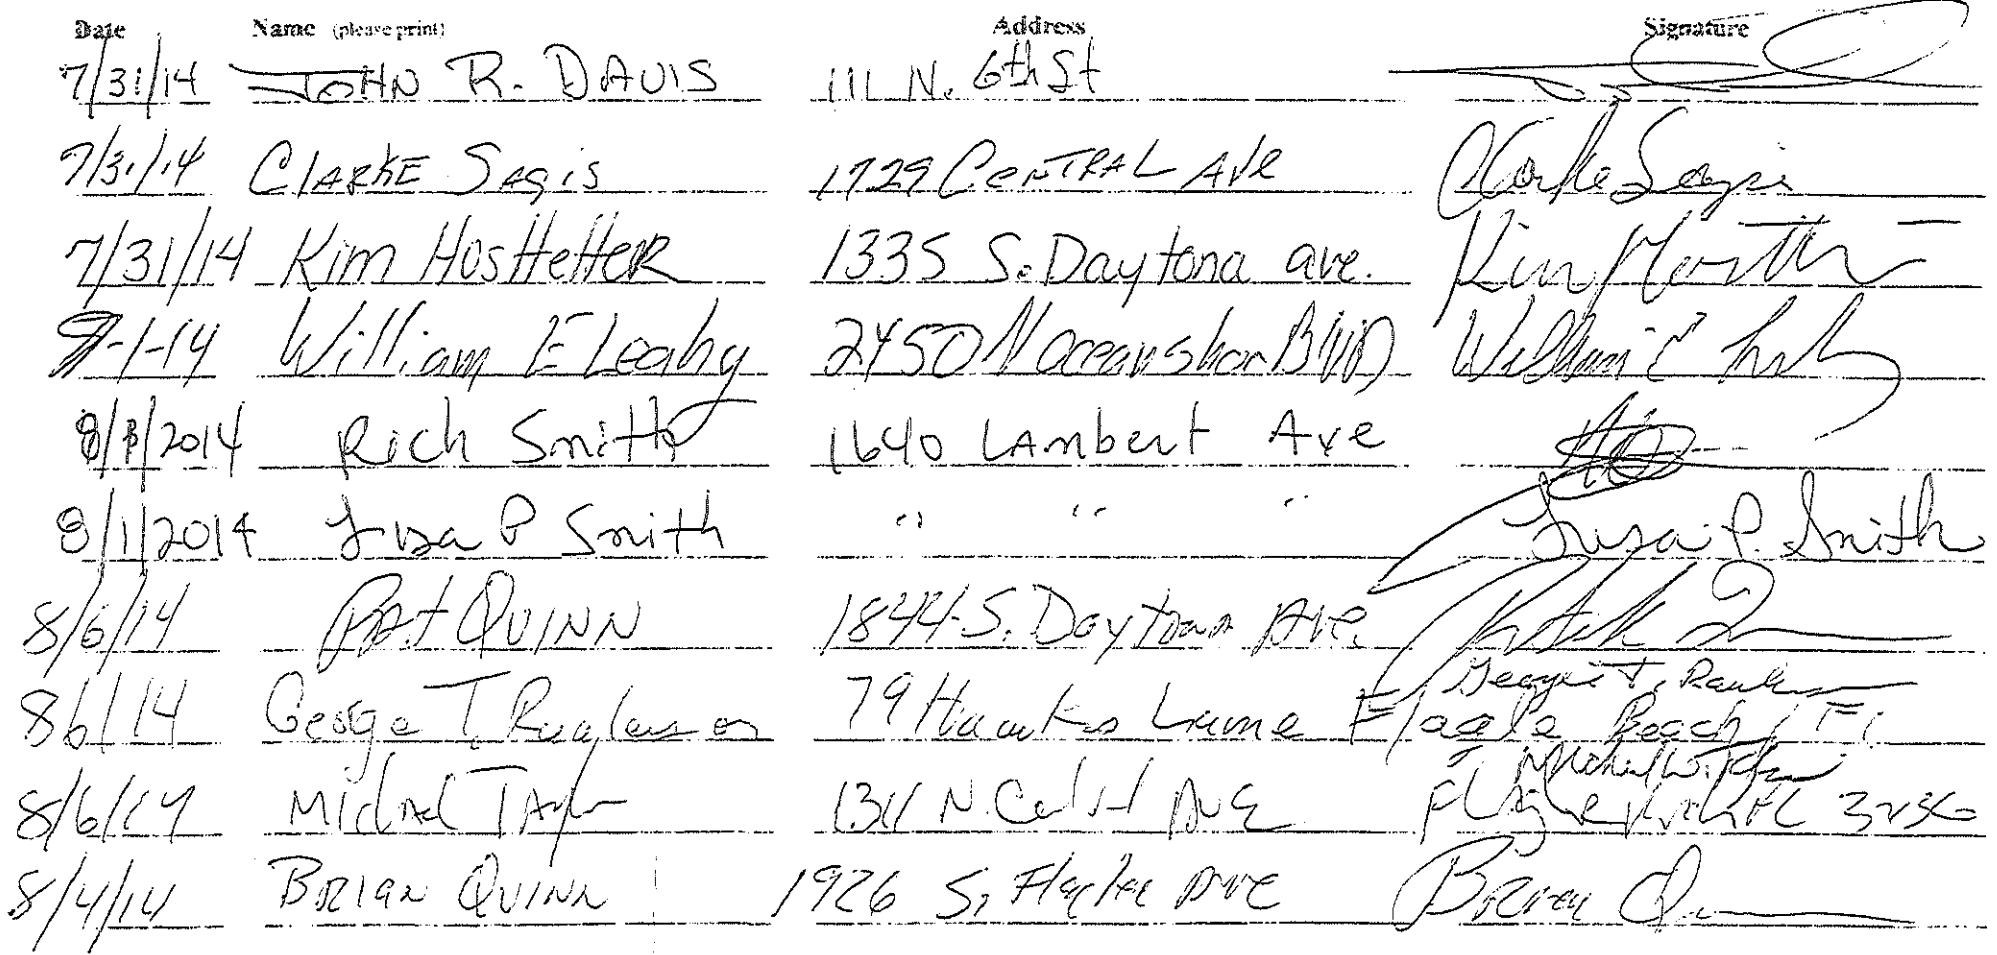 Date Name (please print) Address Signature
7/31/14 JOHN R. DAVIS 111 N. 6th St
7/31/14 CLARKE SAGIS 1729 CENTRAL Ave Clarke Sagis
7/31/14 Kim HostetteR 1335 S. Daytona ave. Kim
8-1-14 William E Leahy 2450 N oceanshor BlvD William E
8/1/2014 Rich Smith 1640 LAmbert Ave
8/1/2014 Lisa P Smith " " " Lisa P. Smith
8/6/14 PAt QUINN 1844 S. Daytona Ave.
George T.
8/6/14 George T. 79 Hawks Lane Flagle Beach Fl
Michael W.
8/6/14 Michael TAylor 1311 N. Ave FL
8/4/14 BRIAN QUINN 1926 S. Flagler Ave Brian